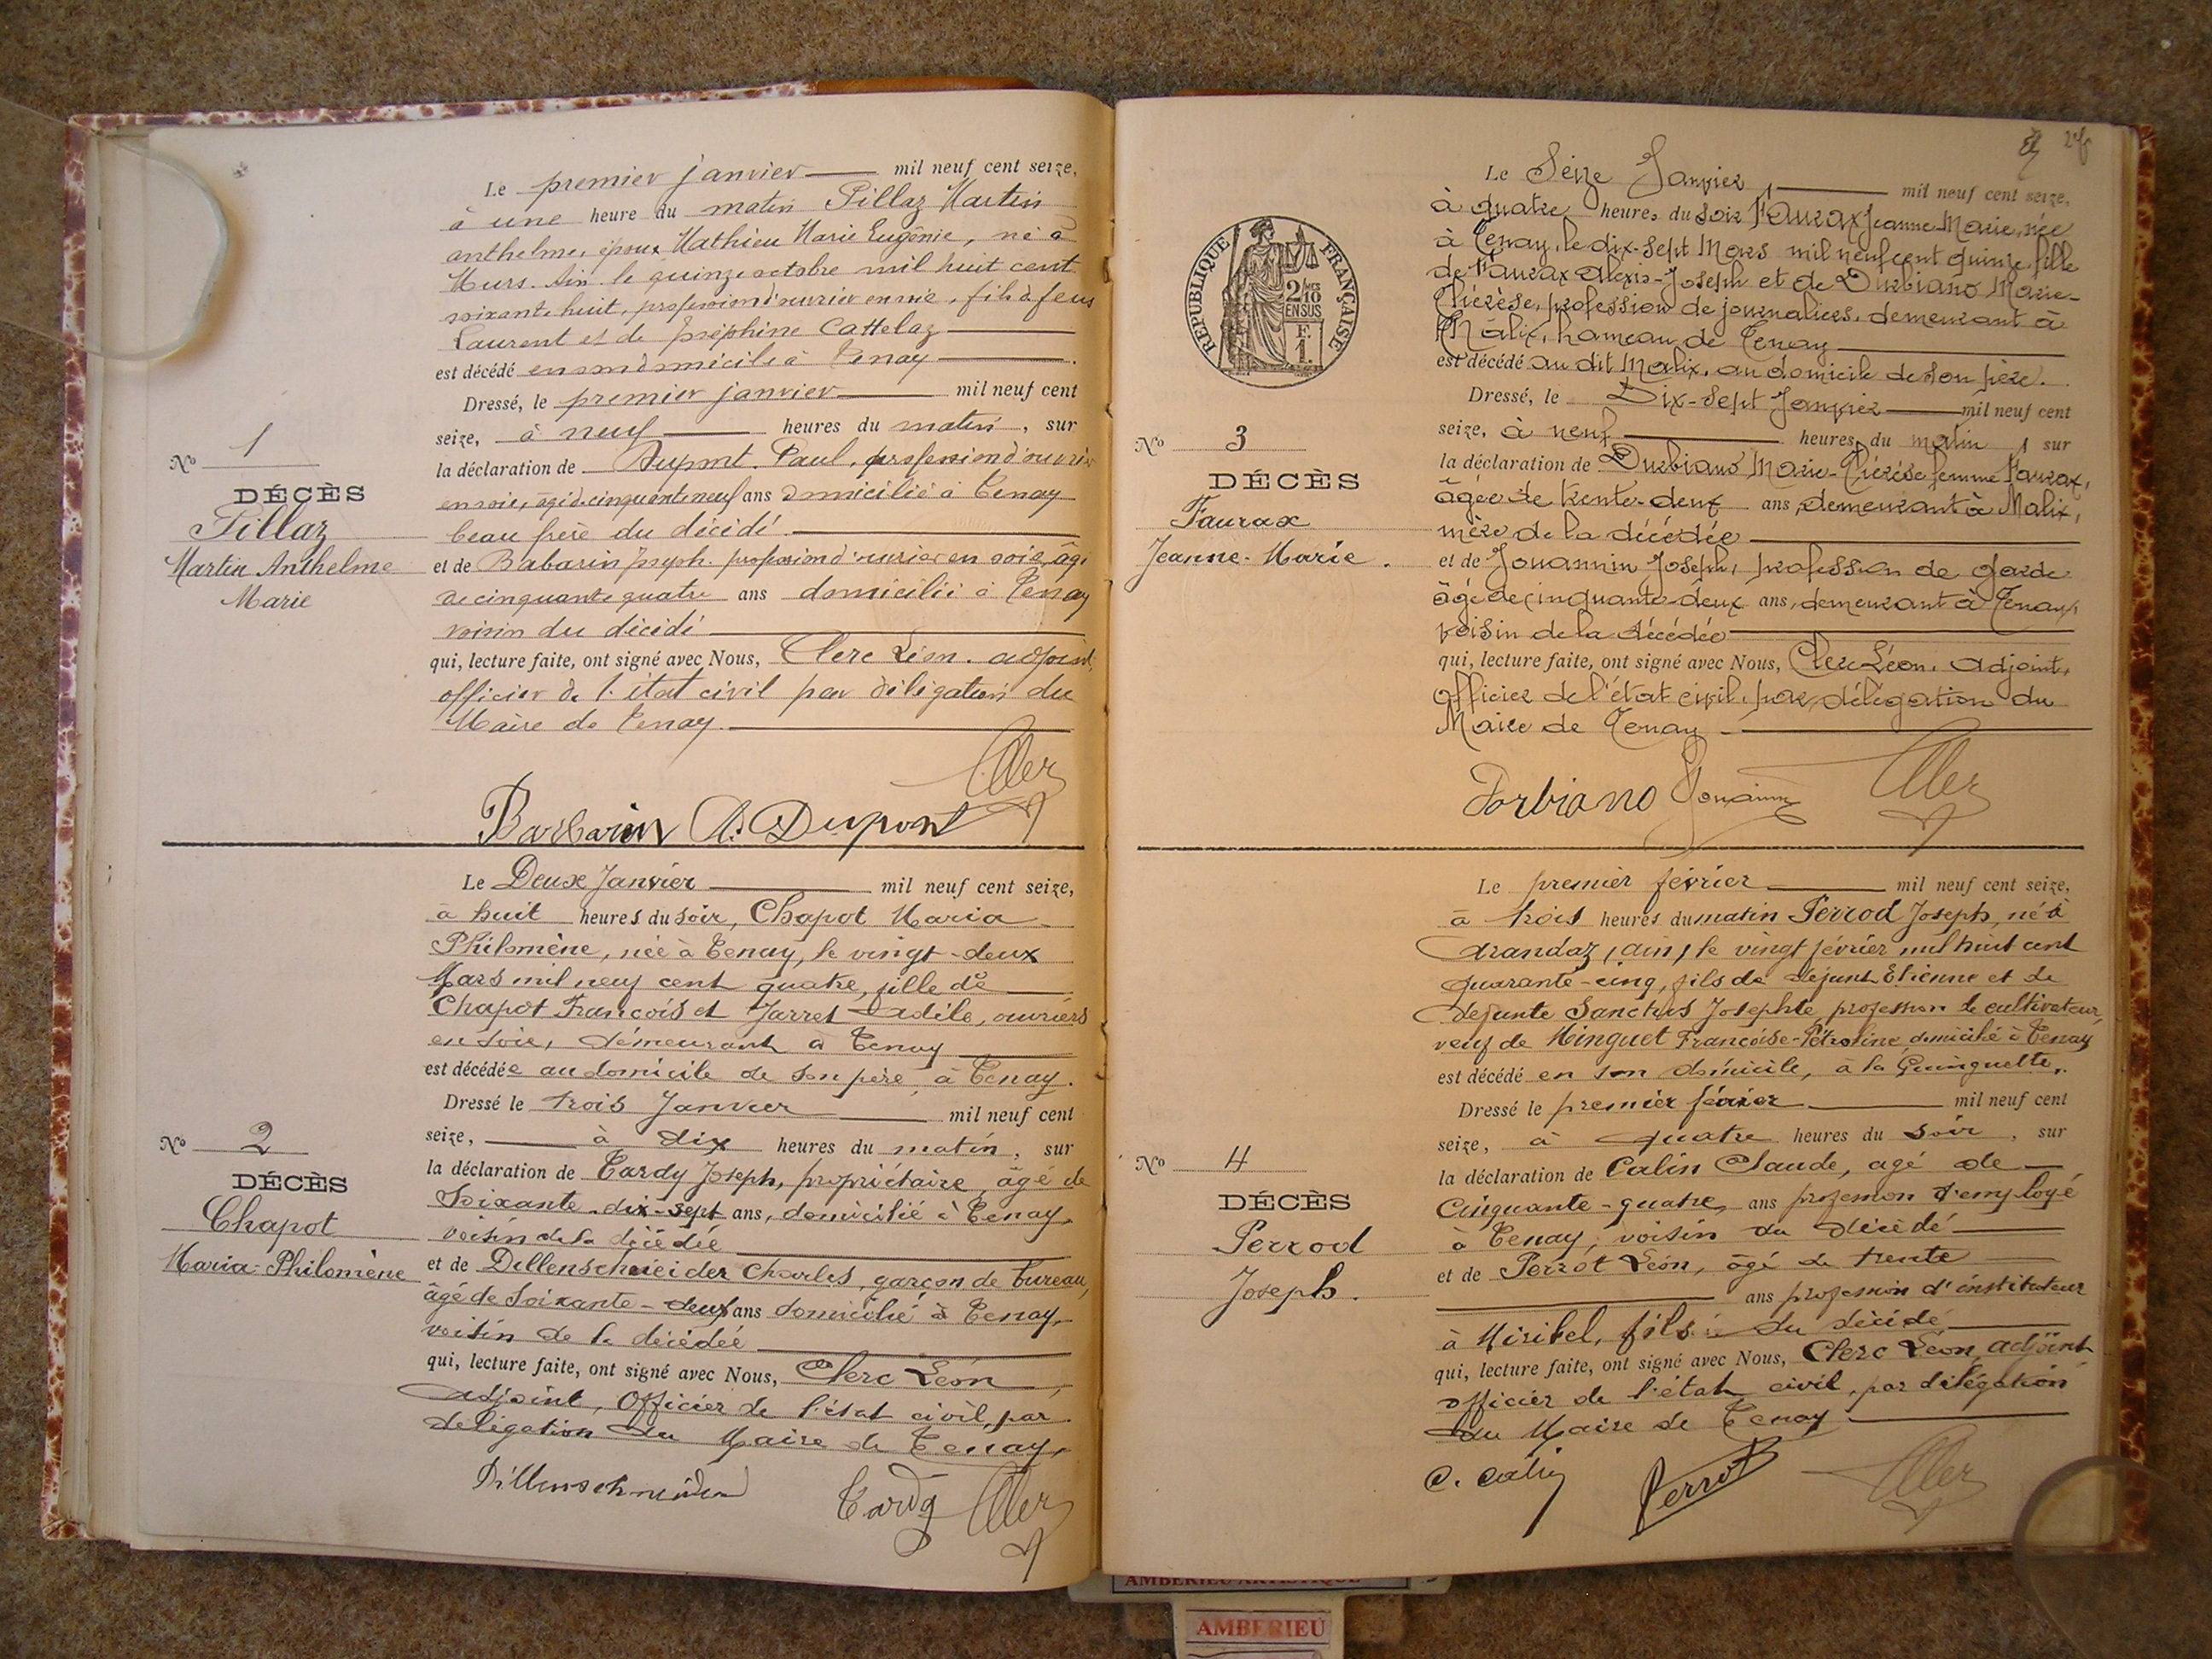 Le premier janvier mil neuf cent seize,
à une heure du matin Pillaz Martin
anthelme, époux Mathieu Marie Eugénie, né à
Murs. Ain. le quinze octobre mil huit cent
soixante huit, profession d'ouvrier en soie, fils de feus
Laurent et de Joséphine Cattelaz
est décédé en son domicile à Tenay.
Dressé, le premier janvier mil neuf cent
seize, à neuf heures du matin, sur
la déclaration de Dupont Paul, profession d'ouvrier
en soie, âgé de cinquante neuf ans domicilié à Tenay
beau frère du décédé
et de Babarin Joseph. profession d'ouvrier en soie, âgé
de cinquante quatre ans domicilié à Tenay
voisin du décédé
qui, lecture faite, ont signé avec Nous, Clerc Léon. adjoint,
officier de l'état civil par délégation du
Maire de Tenay.
Barbarin Dupont
No 1
DÉCÈS
Pillaz
Martin Anthelme
Marie
Le Deux Janvier mil neuf cent seize,
à huit heures du soir, Chapot Maria
Philomène, née à Tenay, le vingt-deux
Mars mil neuf cent quatre, fille de
Chapot François et Jarret Adèle, ouvriers
en soie, demeurant à Tenay
est décédée au domicile de son père à Tenay.
Dressé le trois Janvier mil neuf cent
seize, à dix heures du matin, sur
la déclaration de Tardy Joseph, propriétaire, âgé de
Soixante-dix-sept ans, domicilié à Tenay,
voisin de la décédée
et de Dillenschneider Charles, garçon de bureau,
âgé de Soixante-deux ans domicilié à Tenay,
voisin de la décédée
qui, lecture faite, ont signé avec Nous, Clerc Léon,
adjoint, Officier de l'état civil, par
délégation du Maire de Tenay,
Dillenschneider Tardy
No 2
DÉCÈS
Chapot
Maria-Philomène
Le Seize Janvier mil neuf cent seize,
à quatre heures du soir Faurax Jeanne Marie, née
à Tenay, le dix-sept Mars mil neuf cent quinze, fille
de Faurax Alexis-Joseph et de Durbiano Marie-
Thérèse, profession de journaliers, demeurant à
Malix, hameau de Tenay
est décédé au dit Malix, au domicile de son père.
Dressé, le Dix-Sept Janvier mil neuf cent
seize, à neuf heures du matin, sur
la déclaration de Durbiano Marie-Thérèse femme Faurax,
âgée de trente-deux ans, demeurant à Malix,
mère de la décédée
et de Jouannin Joseph, profession de garde
âgé de cinquante-deux ans, demeurant à Tenay,
voisin de la décédée
qui, lecture faite, ont signé avec Nous, Clerc Léon, adjoint,
officier de l'état civil, par délégation du
Maire de Tenay
Dorbiano
RÉPUBLIQUE FRANÇAISE
2/10 EN SUS
F. 1.
No 3
DÉCÈS
Faurax
Jeanne-Marie.
Le premier février mil neuf cent seize,
à trois heures du matin Perrod Joseph, né à
Arandaz, ain, le vingt février mil huit cent
quarante-cinq, fils de défunt Etienne et de
défunte Sanctus Josephte, profession de cultivateur,
veuf de Minguet Françoise-Pétroline, domicilié à Tenay
est décédé en son domicile, à la Guinguette.
Dressé le premier février mil neuf cent
seize, à quatre heures du soir, sur
la déclaration de Calin Claude, agé de
Cinquante-quatre ans profession d'employé
à Tenay, voisin du décédé
et de Perrot Léon, âgé de trente
ans profession d'instituteur
à Miribel, fils du décédé
qui, lecture faite, ont signé avec Nous, Clerc Léon, adjoint
officier de l'état civil, par délégation
du Maire de Tenay
C. Calin Perrot
No 4
DÉCÈS
Perrod
Joseph.
AMBERIEU ARTISTIQUE
AMBERIEU